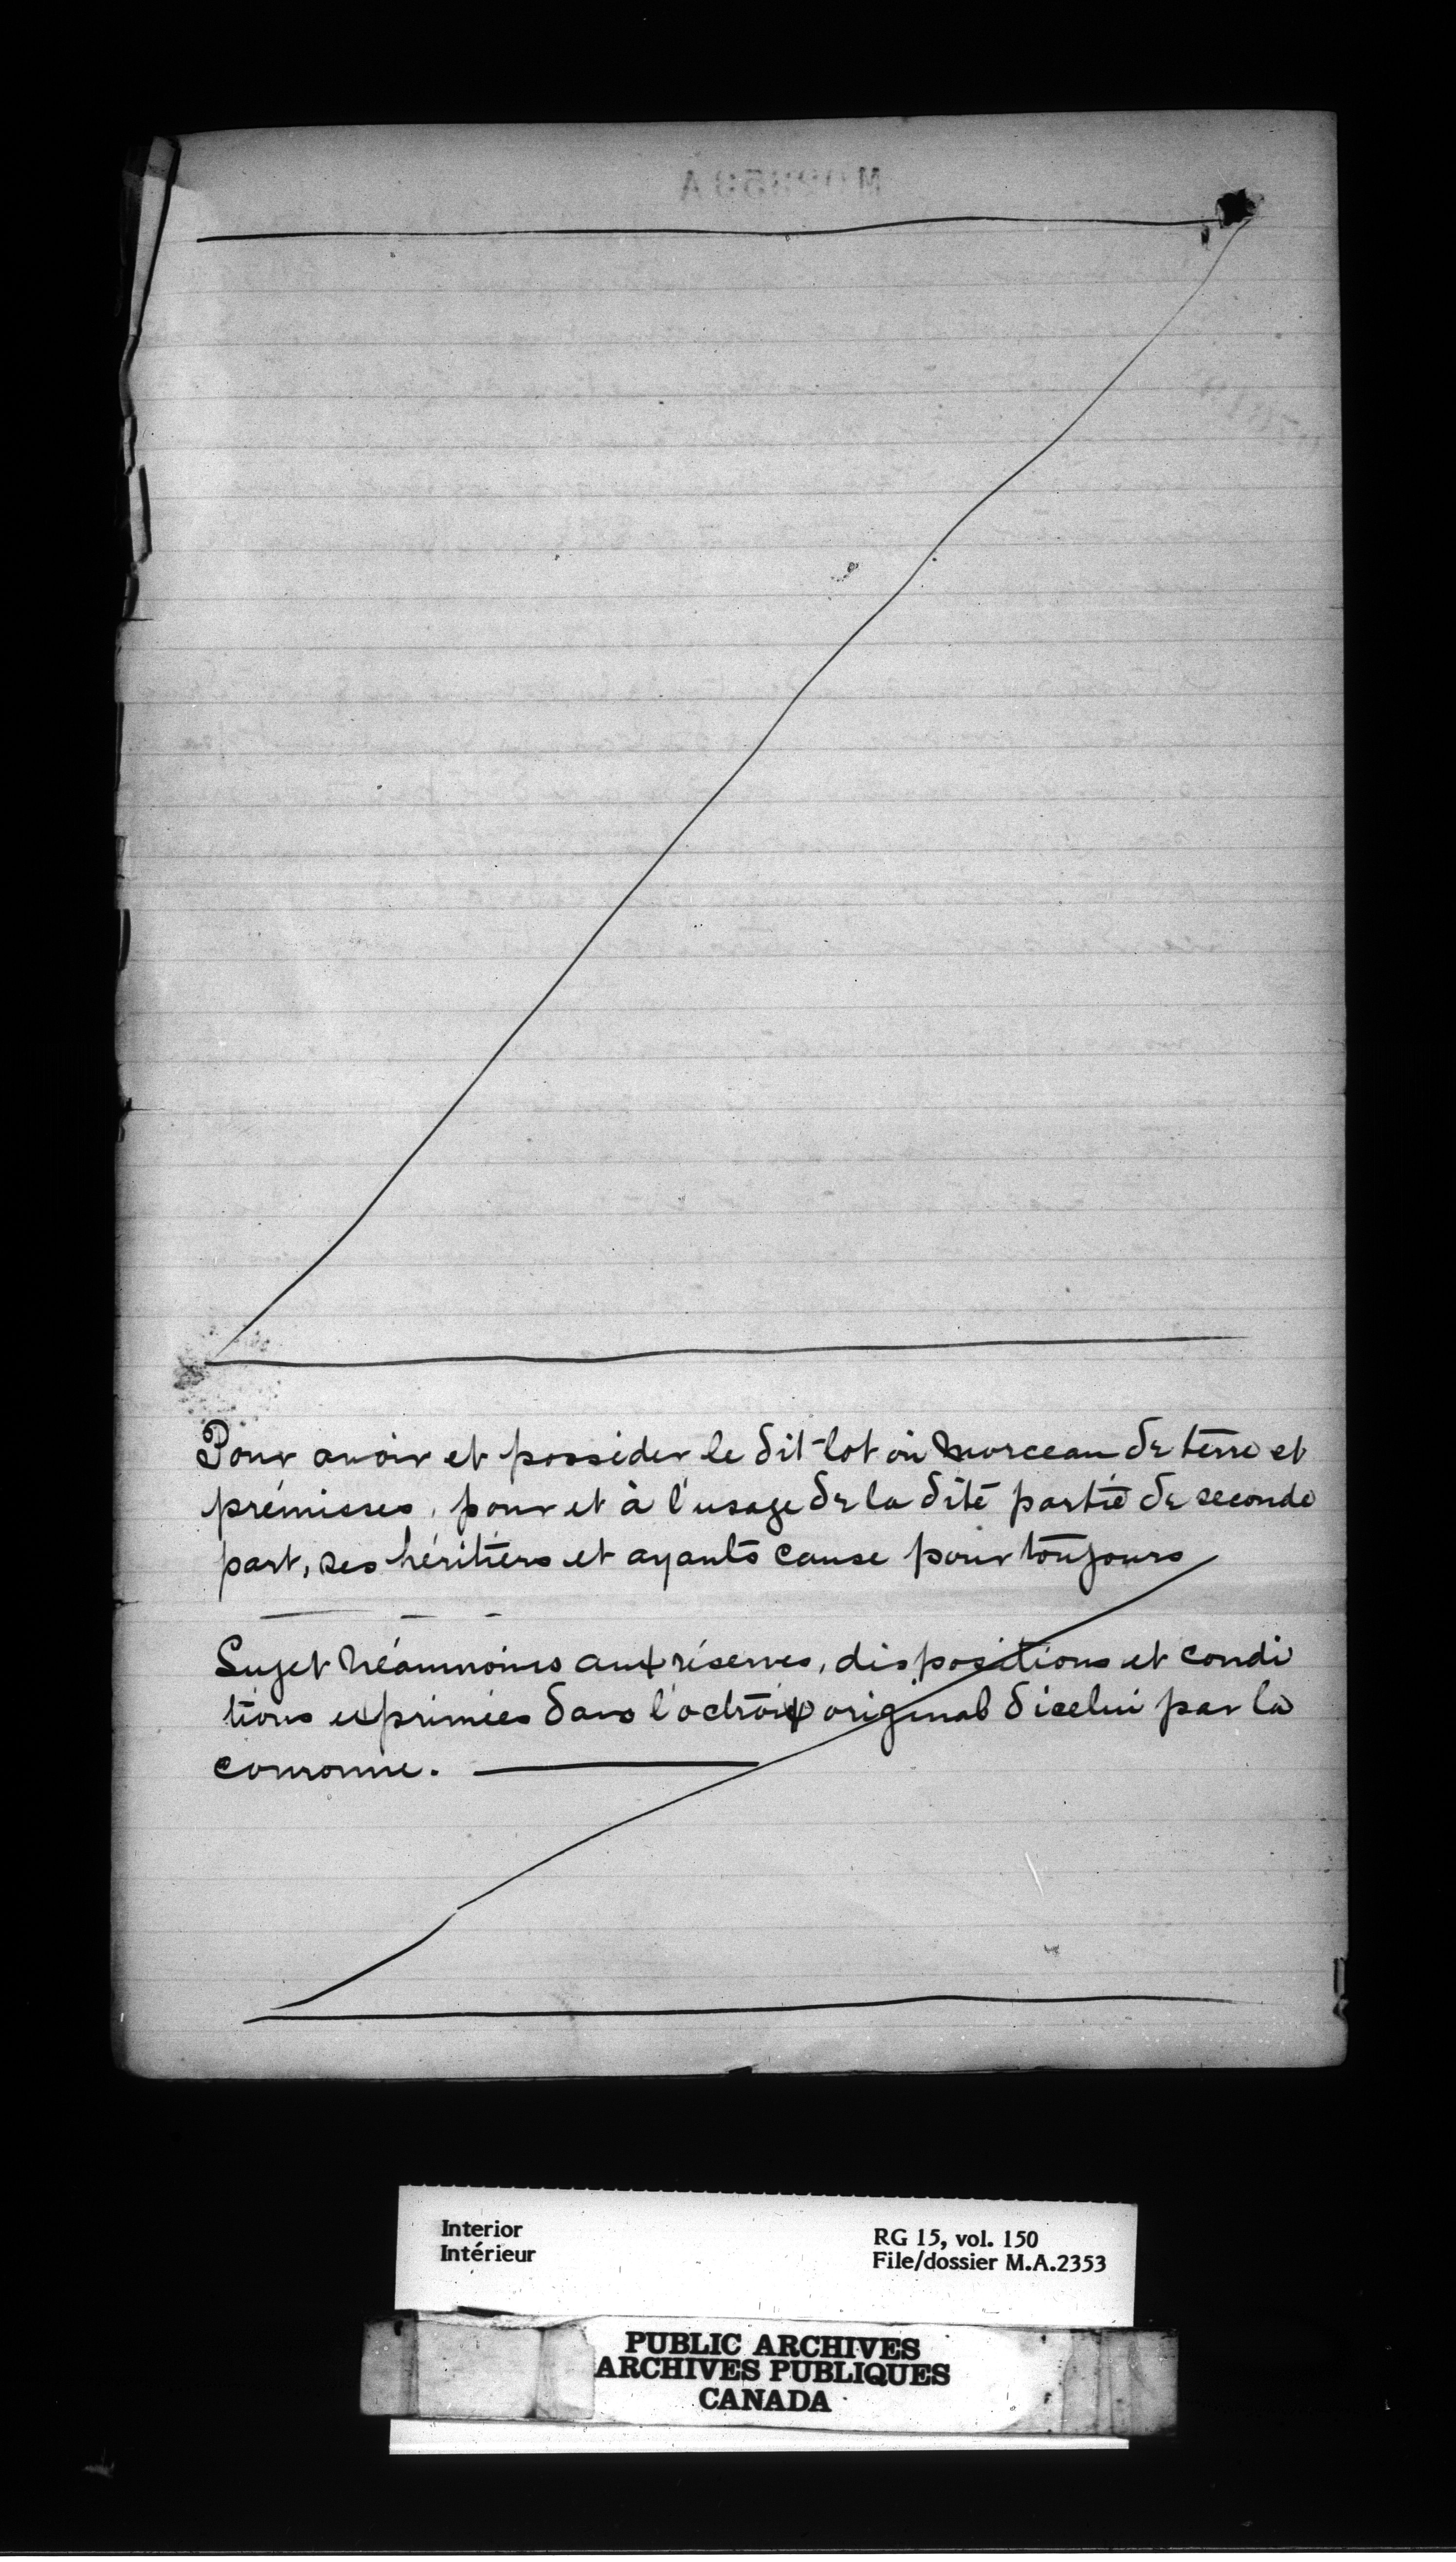 Pour avoir et posséder le dit lot ou morceau de terre et
prémisses, pour et à l'usage de la dite partie de seconde
part, ses héritiers et ayants cause pour toujours
Sujet néanmoins aux réserves, dispositions et condi
tions exprimées dans l'octroi original d'icelui par la
couronne.
Interior
Intérieur
RG 15, vol. 150
File/dossier M.A.2353
PUBLIC ARCHIVES
ARCHIVES PUBLIQUES
CANADA